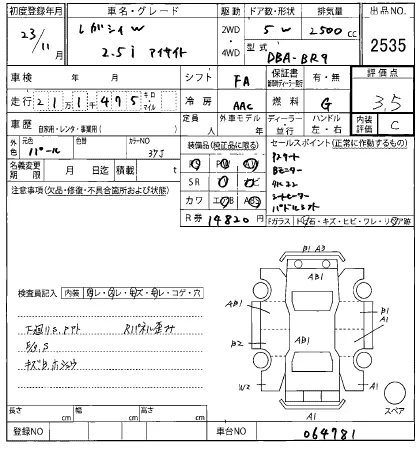 初度登録年月
車名・グレード
駆動
ドア数・形状
排気量
出品NO.
23/11月
レガシィ W
2.5i アイサイト
2WD
4WD
5 W
2500 cc
2535
型式
DBA-BR9
車検
年 月
シフト
FA
保証書
有・無
評価点
3.5
走行
211475
キロ
マイル
冷房
AAC
燃料
G
車歴
自家用・レンタ・事業用( )
定員
人
外車モデル
年
ディーラー・並行
ハンドル
左・右
内装評価
C
外色
元色
パール
色替
カラーNO
37J
装備品(純正品に限る)
セールスポイント(正常に作動するもの)
名義変更期限
月 日迄
積載
t
SR
ナビ
カワ
エアB
ABS
R券
14820 円
Pスタート
Bモニター
シートヒーター
パドルシフト
注意事項(欠品・修復・不具合箇所および状態)
Fガラス
検査員記入
内装
コゲ・穴
下廻りS.
Rパネル歪み
B1 A3
AB1
AB1
B1
A1
B2
AB1
W2
A1
A1
スペア
長さ
cm
幅
cm
高さ
cm
登録NO
車台NO
064781